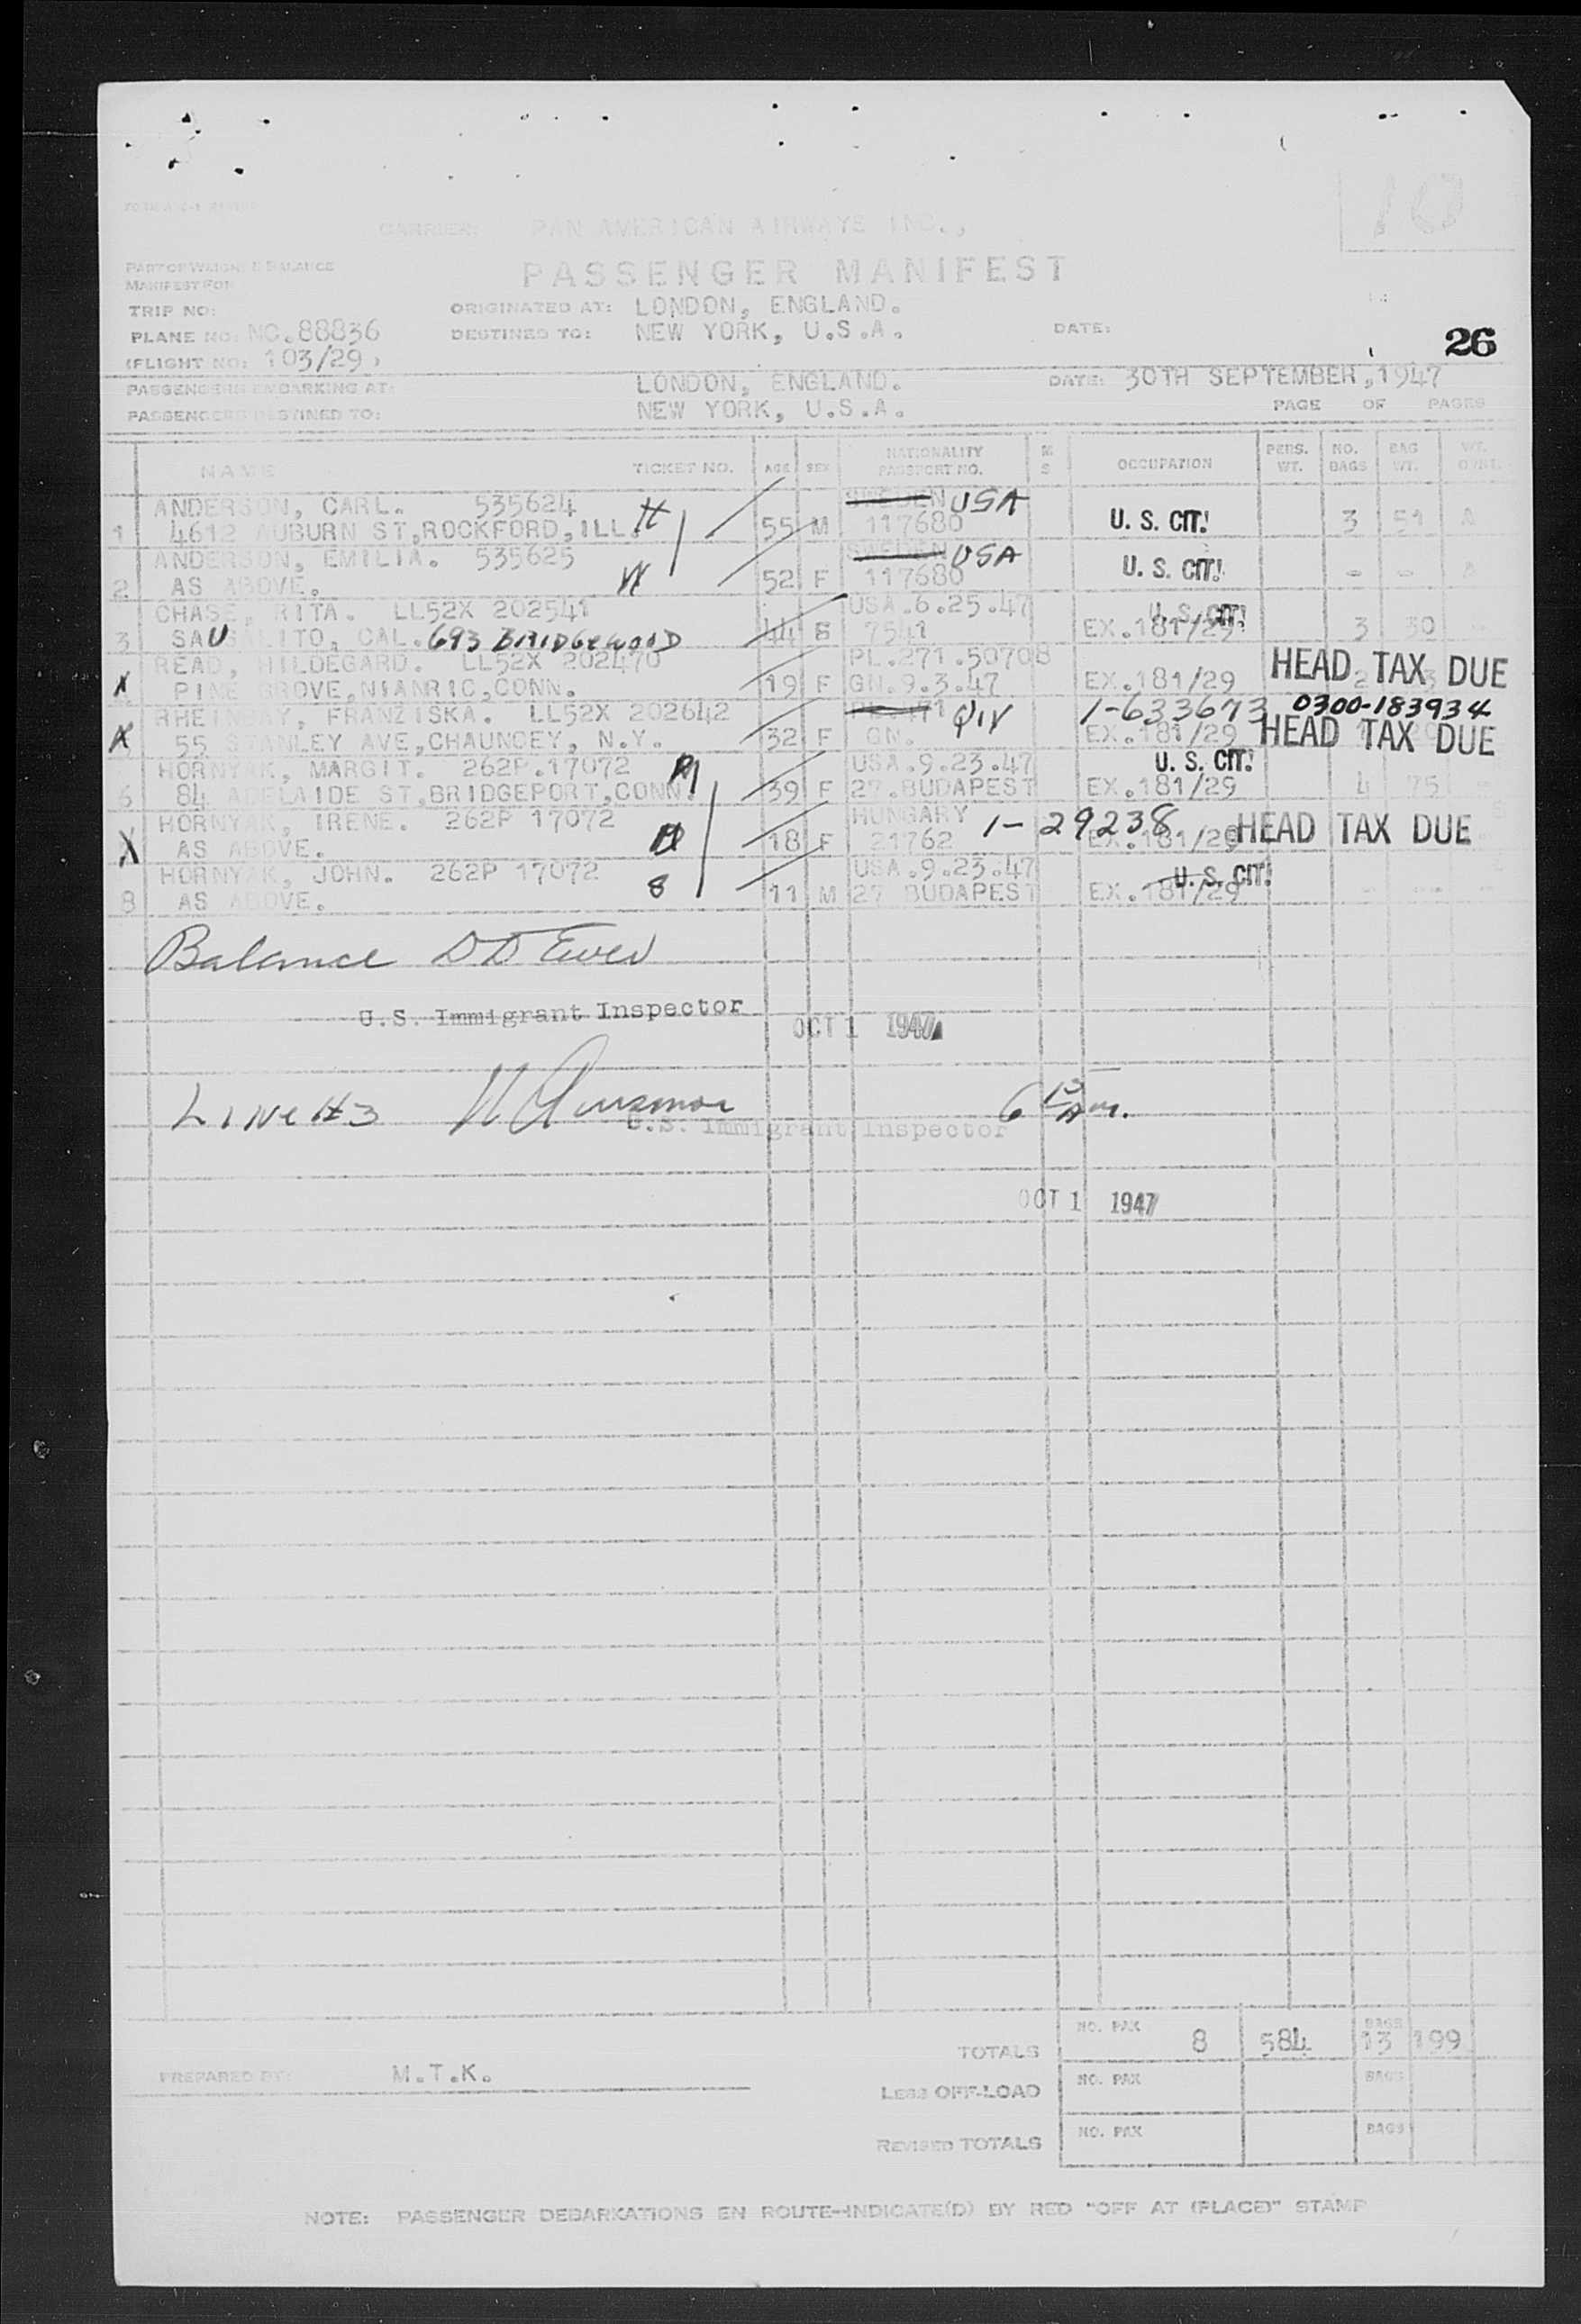 10
CARRIER: PAN AMERICAN AIRWAYS INC.,
PART OF WEIGHT & BALANCE
MANIFEST FOR
PASSENGER MANIFEST
TRIP NO: ORIGINATED AT: LONDON, ENGLAND.
PLANE NO: NC.88836 DESTINED TO: NEW YORK, U.S.A. DATE:
26
(FLIGHT NO: 103/29)
PASSENGERS EMBARKING AT: LONDON, ENGLAND. DATE: 30TH SEPTEMBER,1947
PASSENGERS DESTINED TO: NEW YORK, U.S.A. PAGE OF PAGES
NAME TICKET NO. AGE SEX NATIONALITY PASSPORT NO. M S OCCUPATION PERS. WT. NO. BAGS BAG WT.
ANDERSON, CARL. 535624 H SWEDEN USA
1 4612 AUBURN ST,ROCKFORD,ILL. 55 M 117680 U. S. CIT! 3 51 A
ANDERSON, EMILIA. 535625 SWEDEN USA
2 AS ABOVE. W 52 F 117680 U. S. CIT! - - A
CHASE, RITA. LL52X 202541 USA.6.25.47 U. S. CIT!
3 SAUSALITO, CAL. 693 BRIDGEWOOD 44 7541 EX.181/29 3 30
READ, HILDEGARD. LL52X 202470 PL.271.50708
X PINE GROVE,NIANRIC,CONN. 19 F GN.9.3.47 EX.181/29 HEAD TAX DUE
RHEINBAY, FRANZISKA. LL52X 202642 QIV 1-633673 0300-183934
X 55 STANLEY AVE,CHAUNCEY, N.Y. 32 F GN. EX.181/29 HEAD TAX DUE
HORNYAK, MARGIT. 262P.17072 USA.9.23.47 U. S. CIT!
6 84 ADELAIDE ST,BRIDGEPORT,CONN. 39 F 27.BUDAPEST EX.181/29 4 75
HORNYAK, IRENE. 262P 17072 HUNGARY 1-29238
X AS ABOVE. 18 F 21762 EX.181/29 HEAD TAX DUE
HORNYAK, JOHN. 262P 17072 USA.9.23.47 U. S. CIT!
8 AS ABOVE. 8 11 M 27 BUDAPEST EX.181/29
Balance
U.S. Immigrant Inspector
OCT 1 1947
LINE #3 6 15 AM.
U.S. Immigrant Inspector
OCT 1 1947
TOTALS NO. PAX 8 584 BAGS 13 199
PREPARED BY: M.T.K.
LESS OFF-LOAD NO. PAX BAGS
REVISED TOTALS NO. PAX BAGS
NOTE: PASSENGER DEBARKATIONS EN ROUTE-INDICATE(D) BY RED "OFF AT (PLACE)" STAMP